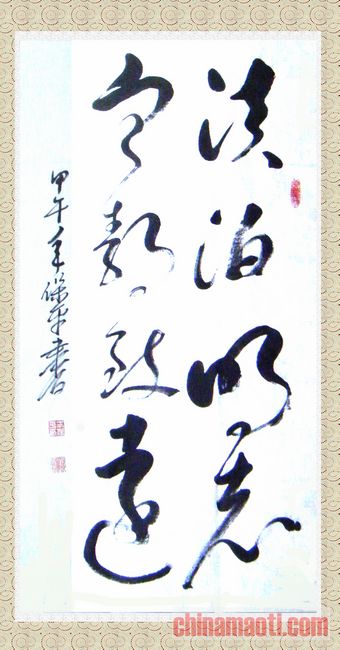 淡泊明志
宁静致遠
甲午保平書
chinamaoti.com